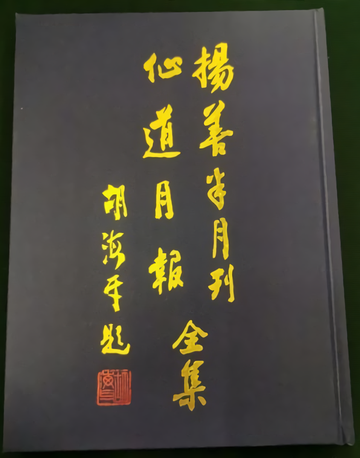 揚善半月刊
仙道月報
全集
胡海牙題